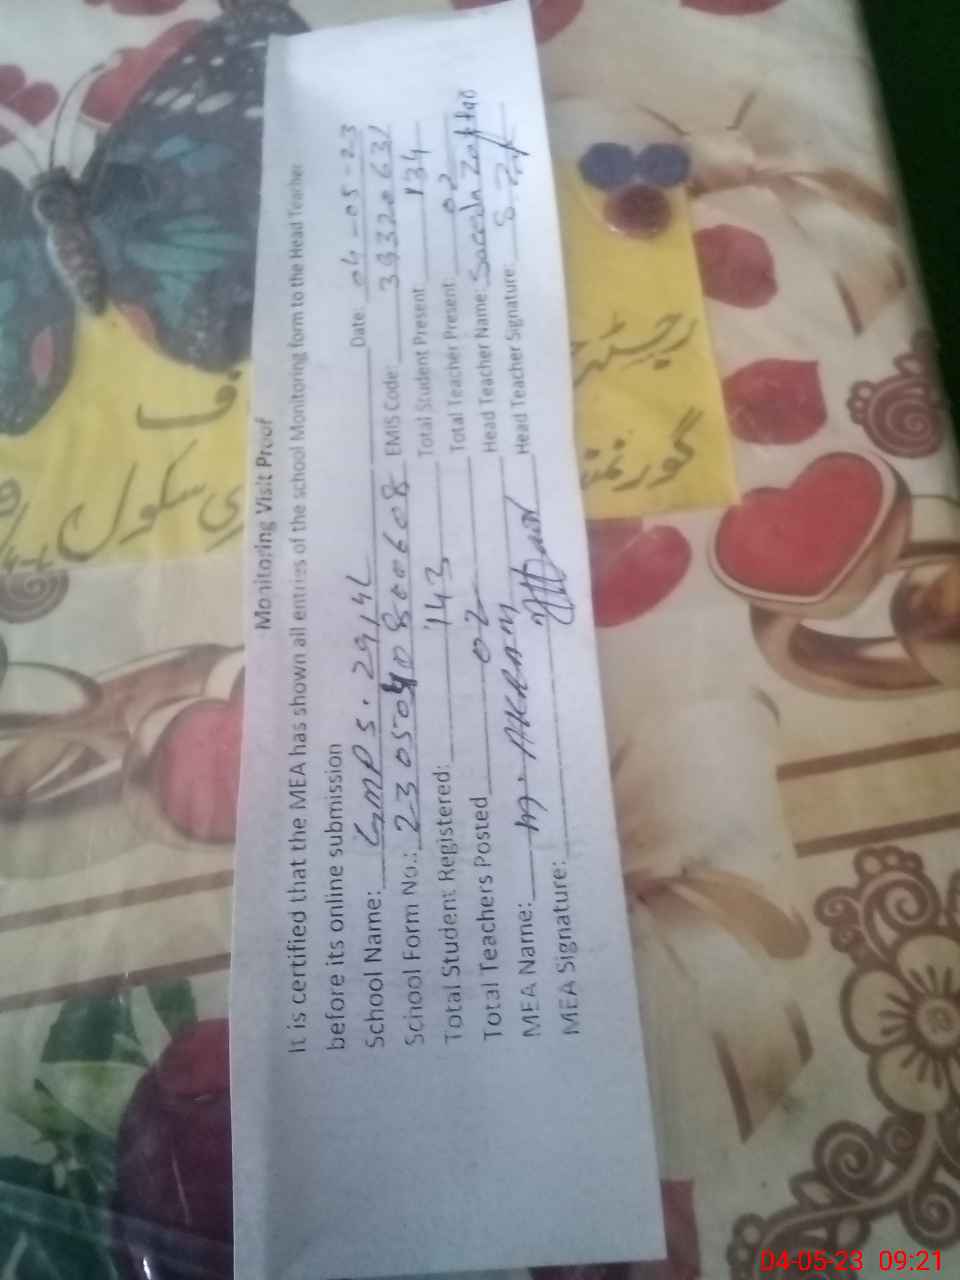 Monitoring Visit Proof
It is certified that the MEA has shown all entries of the school Monitoring form to the Head Teacher
before its online submission
School Name: GMPS. 29/4L Date: 04-05-23
School Form No.: 23050408000608 EMIS Code: 39320631
Total Student Registered: 143 Total Student Present 134
Total Teachers Posted 02 Total Teacher Present 02
MEA Name: M. AKRAM Head Teacher Name:
MEA Signature: Head Teacher Signature:
رجسٹر
گورنمنٹ
سکول
04-05-23 09:21